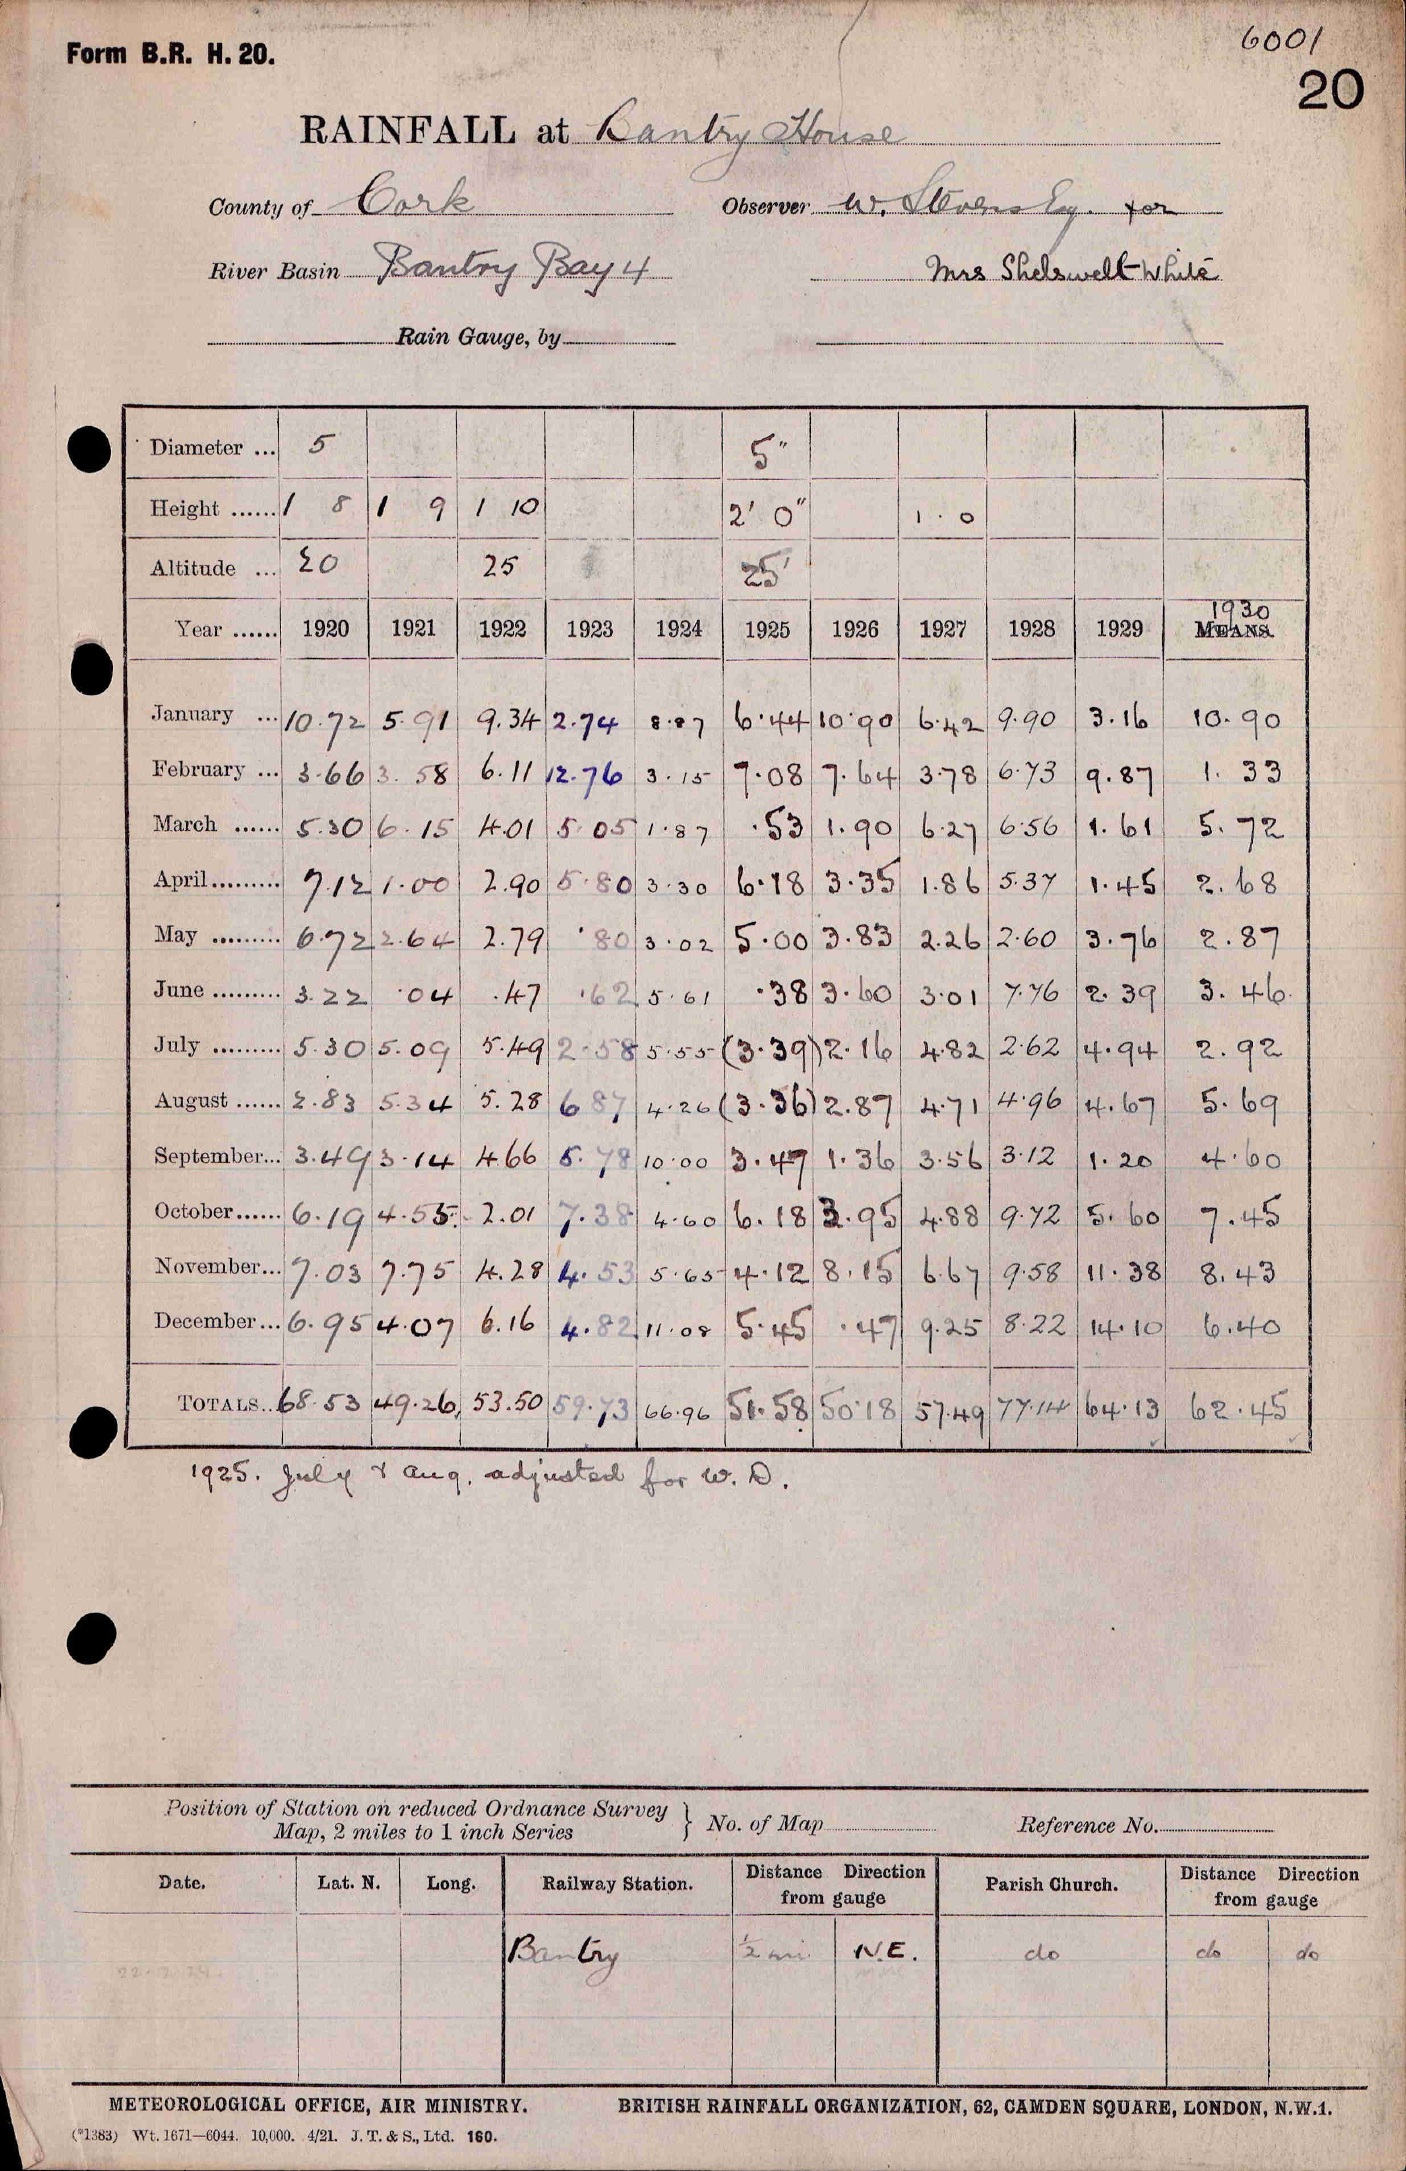 Form B.R. H. 20.
6001
20
RAINFALL at Bantry House
County of Cork Observer W. Stevens Esq. for
River Basin Bantry Bay 4 Mrs Shelswell-White
Rain Gauge, by
Diameter ... 5 5"
Height ...... 1 8 1 9 1 10 2' 0" 1 . 0
Altitude ... 20 25 25'
1930
Year ...... 1920 1921 1922 1923 1924 1925 1926 1927 1928 1929 MEANS.
January ... 10.72 5.91 9.34 2.74 8.87 6.44 10.90 6.42 9.90 3.16 10.90
February ... 3.66 3.58 6.11 12.76 3.15 7.08 7.64 3.78 6.73 9.87 1.33
March ...... 5.30 6.15 4.01 5.05 1.87 .53 1.90 6.27 6.56 1.61 5.72
April......... 7.12 1.00 2.90 5.80 3.30 6.18 3.35 1.86 5.37 1.45 2.68
May ......... 6.72 2.64 2.79 .80 3.02 5.00 3.83 2.26 2.60 3.76 2.87
June ......... 3.22 .04 .47 .62 5.61 .38 3.60 3.01 7.76 2.39 3.46
July ......... 5.30 5.09 5.49 2.58 5.55 (3.39) 2.16 4.82 2.62 4.94 2.92
August ...... 2.83 5.34 5.28 6 87 4.26 (3.36) 2.87 4.71 4.96 4.67 5.69
September... 3.49 3.14 4.66 5.78 10.00 3.47 1.36 3.56 3.12 1.20 4.60
October...... 6.19 4.55 2.01 7.38 4.60 6.18 3.95 4.88 9.72 5.60 7.45
November... 7.03 7.75 4.28 4.53 5.65 4.12 8.15 6.67 9.58 11.38 8.43
December... 6.95 4.07 6.16 4.82 11.08 5.45 .47 9.25 8.22 14.10 6.40
TOTALS.. 68.53 49.26 53.50 59.73 66.96 51.58 50.18 57.49 77.14 64.13 62.45
1925. July & Aug. adjusted for W. D.
Position of Station on reduced Ordnance Survey
Map, 2 miles to 1 inch Series } No. of Map Reference No.
Date. Lat. N. Long. Railway Station. Distance Direction from gauge Parish Church. Distance Direction from gauge
Bantry ½ mi N.E. do do do
METEOROLOGICAL OFFICE, AIR MINISTRY. BRITISH RAINFALL ORGANIZATION, 62, CAMDEN SQUARE, LONDON, N.W.1.
(*1383) Wt. 1671—6044. 10,000. 4/21. J. T. & S., Ltd. 160.